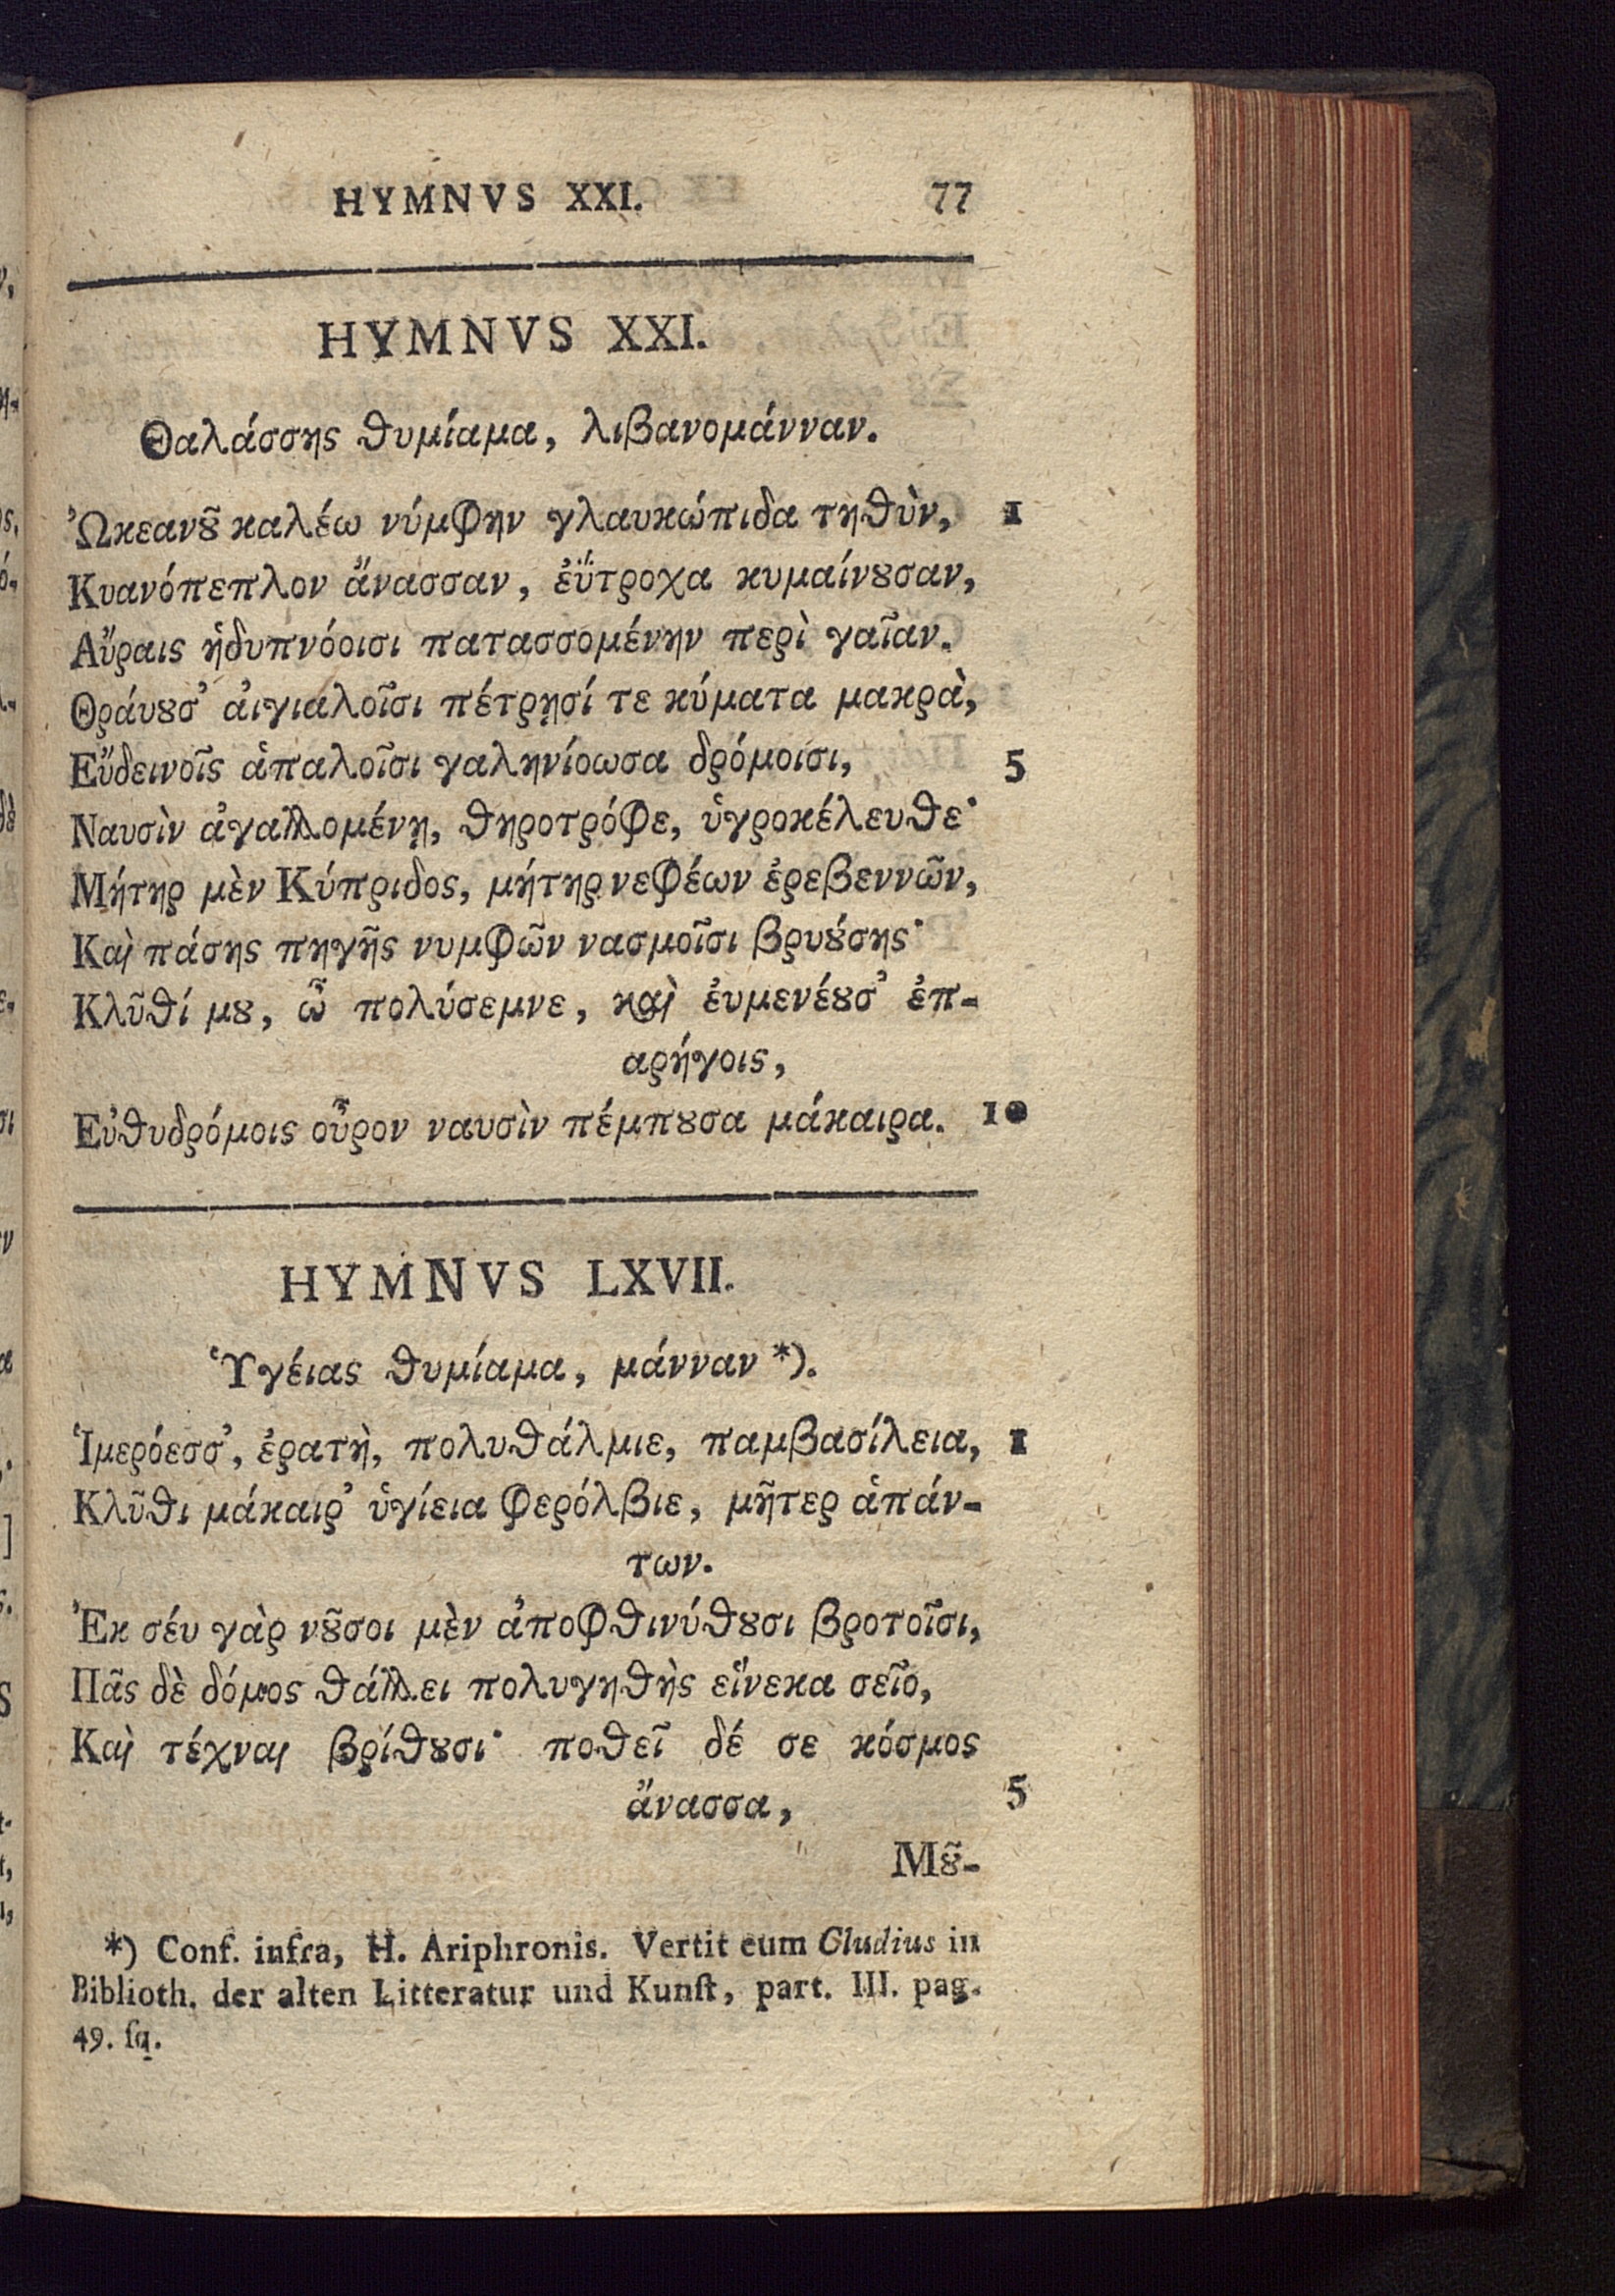 HYMNVS XXI. 77
HYMNVS XXI.
Θαλάσσης θυμίαμα, λιβανομάνναν.
Ὠκεανȣ͂ καλέω νύμφην γλαυκώπιδα τηθὺν, 1
Κυανόπεπλον ἄνασσαν, ἐΰτροχα κυμαίνȣσαν,
Αὔραις ἡδυπνόοισι πατασσομένην περὶ γαῖαν.
Θράυȣσ' ἀιγιαλοῖσι πέτρῃσί τε κύματα μακρὰ,
Εὔδεινοῖς ἁπαλοῖσι γαληνίοωσα δρόμοισι, 5
Ναυσὶν ἀγαλλομένη, θηροτρόφε, ὑγροκέλευθε·
Μήτηρ μὲν Κύπριδος, μήτηρ νεφέων ἐρεβεννῶν,
Καὶ πάσης πηγῆς νυμφῶν νασμοῖσι βρυȣ́σης·
Κλῦθί μȣ, ὦ πολύσεμνε, καὶ ἐυμενέȣσ' ἐπ-
αρήγοις,
Εὐθυδρόμοις οὖρον ναυσὶν πέμπȣσα μάκαιρα. 10
HYMNVS LXVII.
Ὑγέιας θυμίαμα, μάνναν *).
Ἱμερόεσσ', ἐρατὴ, πολυθάλμιε, παμβασίλεια, 1
Κλῦθι μάκαιρ' ὑγίεια φερόλβιε, μῆτερ ἁπάν-
των.
Ἐκ σέυ γὰρ νȣ͂σοι μὲν ἀποφθινύθȣσι βροτοῖσι,
Πᾶς δὲ δόμος θάλλει πολυγηθὴς εἵνεκα σεῖο,
Καὶ τέχναι βρίθȣσι· ποθεῖ δέ σε κόσμος
ἄνασσα, 5
Μȣ͂-
*) Conf. infra, H. Ariphronis. Vertit eum Cludius in
Biblioth. der alten Litteratur und Kunſt, part. III. pag.
49. ſq.